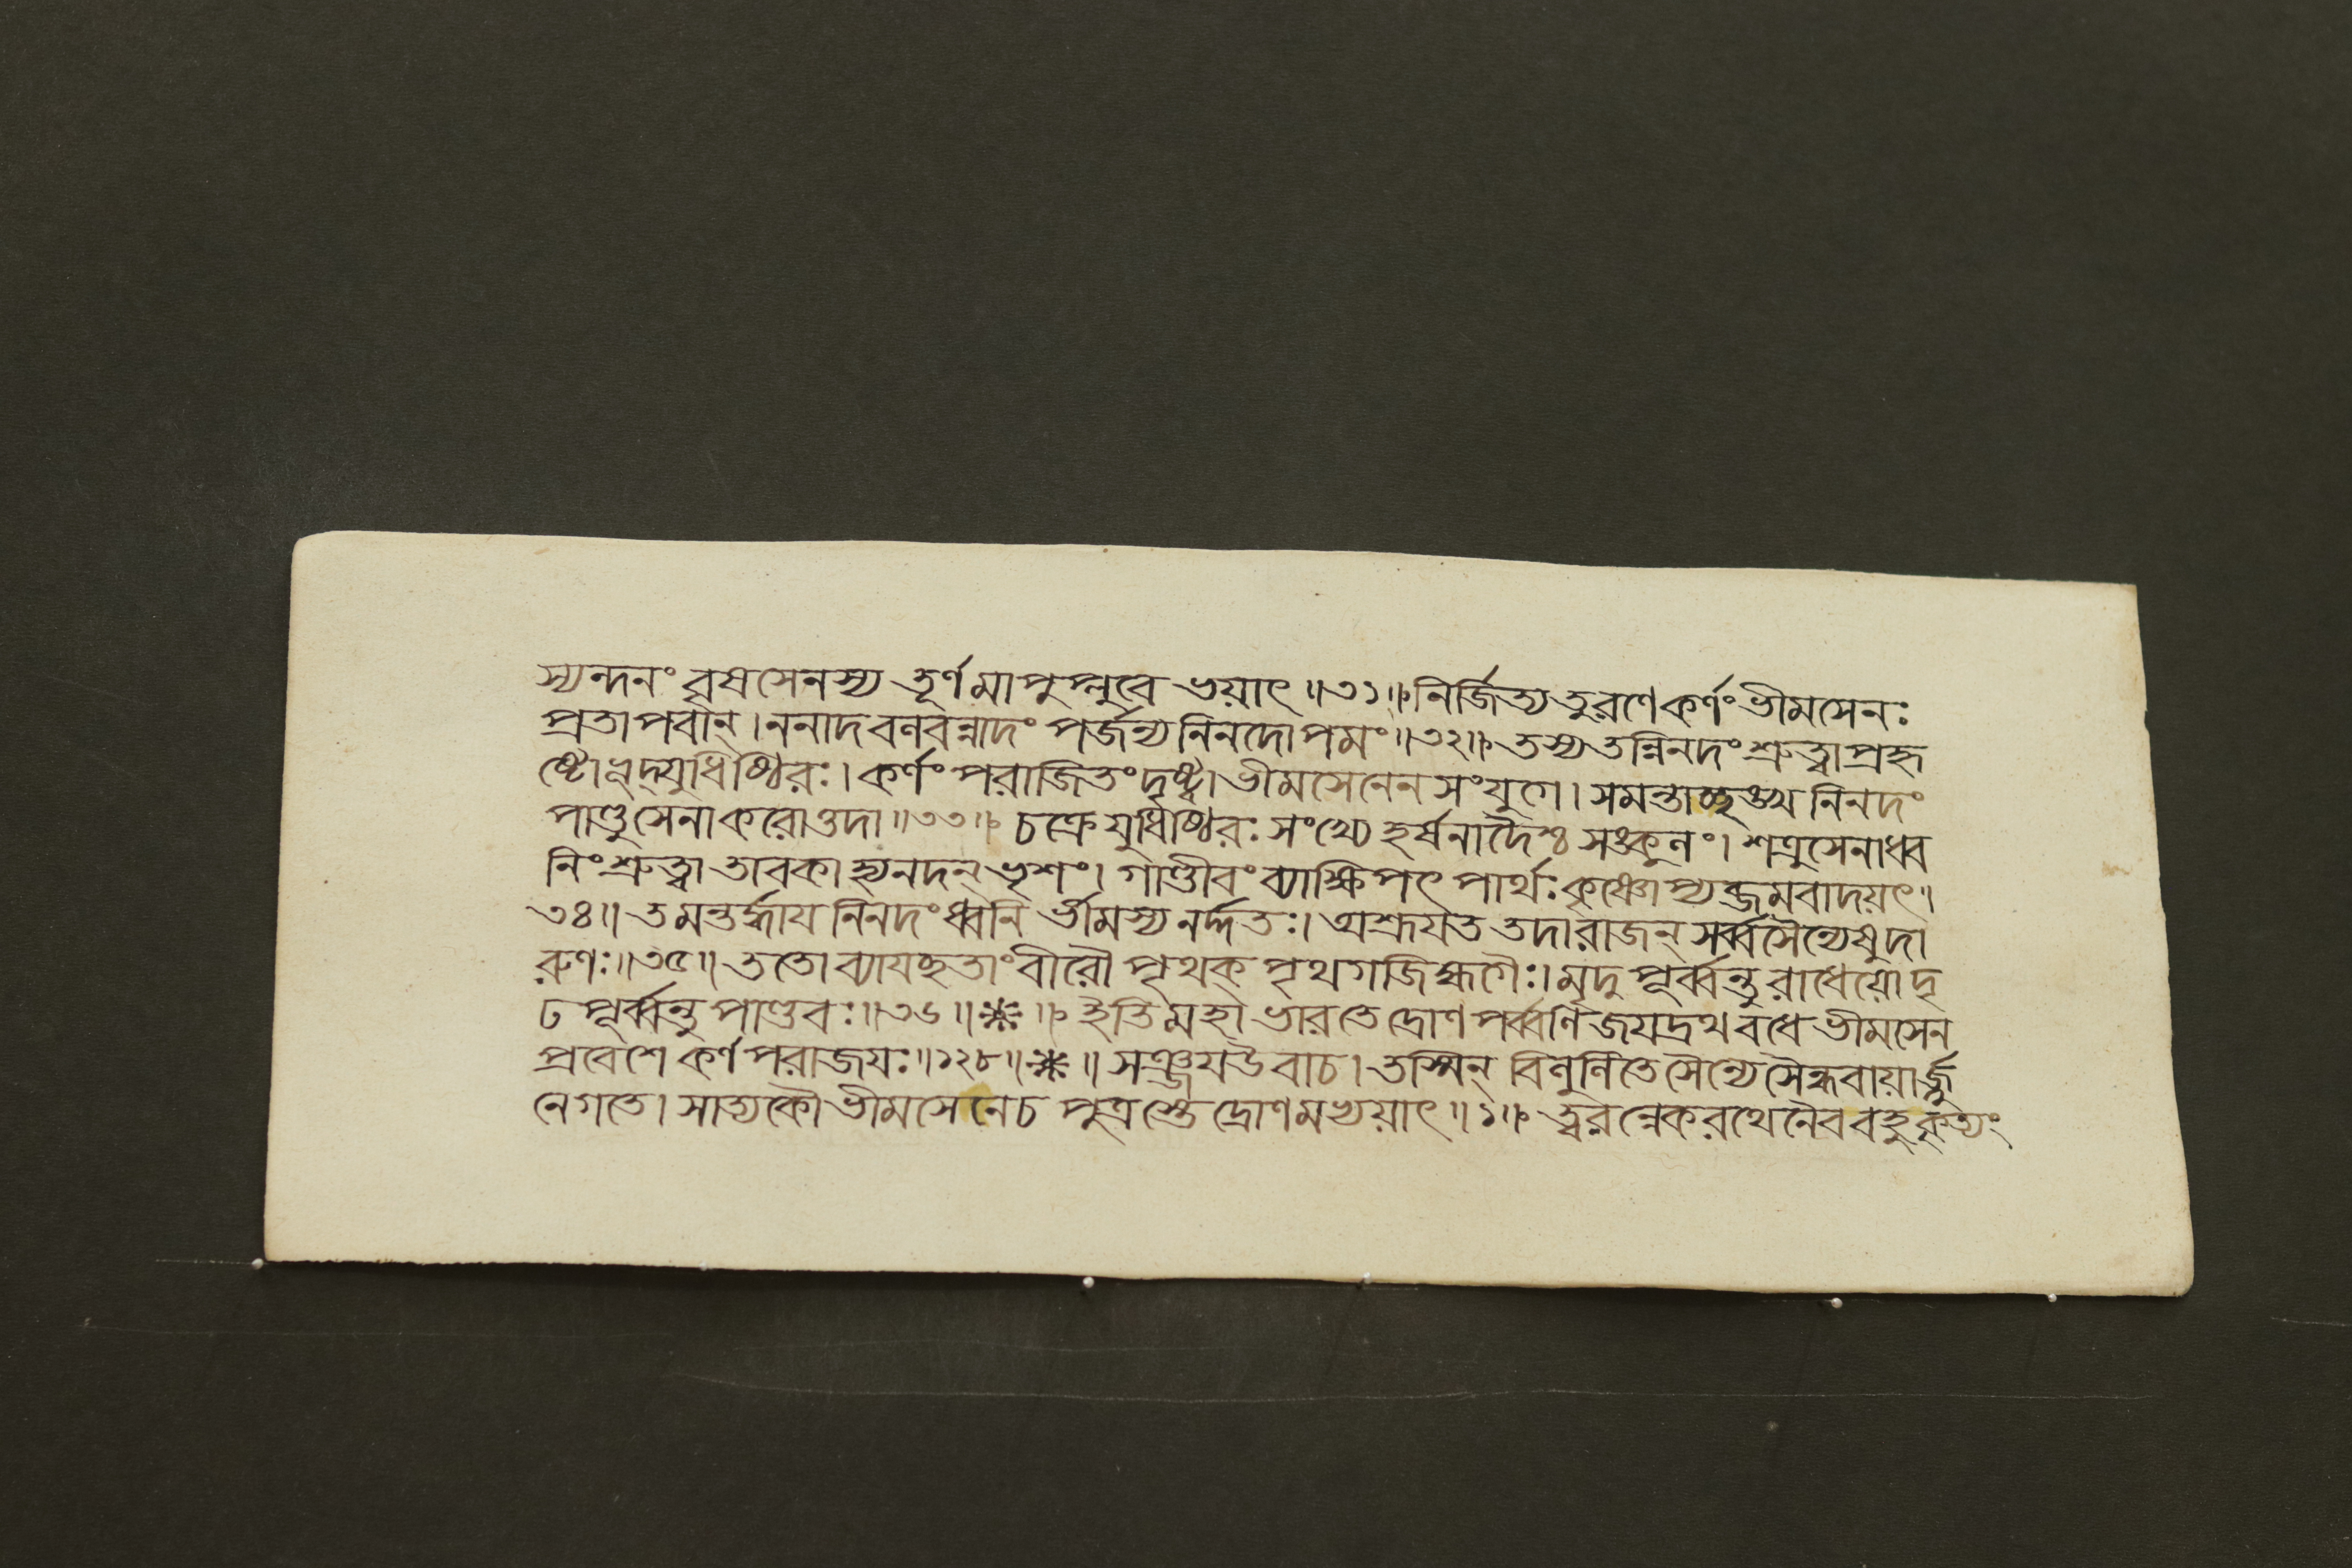 স্যন্দনং বৃষসেনস্য তূর্ণমাপুপ্লুবে ভয়াৎ॥৩১॥ নির্জিত্য তু রণে কর্ণং ভীমসেনঃ
প্রতাপবান্। ননাদ বলবন্নাদং পর্জন্য নিনদোপমং॥৩২॥ তস্য তন্নিনদং শ্রুত্বা প্রহৃ
ষ্টোভূদ্যুধিষ্ঠিরঃ। কর্ণং পরাজিতং দৃষ্ট্বা ভীমসেনেন সংযুগে। সমন্তাচ্ছঙ্খ নিনদং
পাণ্ডুসেনাকরোত্তদা॥৩৩॥ চক্রে যুধিষ্ঠিরঃ সংখ্যে হর্ষনাদৈশ্চ সঙ্কুলং। শত্রুসেনাধ্ব
নিং শ্রুত্বা তাবকা হ্যনদন্ ভৃশং। গাণ্ডীবং ব্যাক্ষিপৎ পার্থঃ কৃষ্ণোপ্যব্জমবাদয়ৎ॥
৩৪॥ তমন্তর্দ্ধায নিনদং ধ্বনি র্ভীমস্য নর্দ্দতঃ। অশ্রূযত তদা রাজন্ সর্ব্বসৈন্যেষু দা
রুণঃ॥৩৫॥ ততো ব্যাযচ্ছতাং বীরৌ পৃথক্ পৃথগজিহ্মগৈঃ। মৃদু পূর্ব্বন্তু রাধেয়ো দৃ
ঢ পূর্ব্বন্তু পাণ্ডবঃ॥৩৬॥ ॥ ইতি মহাভারতে দ্রোণপর্ব্বণি জযদ্রথবধে ভীমসেন
প্রবেশে কর্ণ পরাজযঃ॥১২৮॥ ॥ সঞ্জয উবাচ। তস্মিন্ বিলুলিতে সৈন্যে সৈন্ধবাযার্জ্জু
নে গতে। সাত্যকৌ ভীমসেনে চ পুত্রস্তে দ্রোণমভ্যয়াৎ॥১॥ ত্বরন্নেকরথেনৈব বহুকৃত্যং